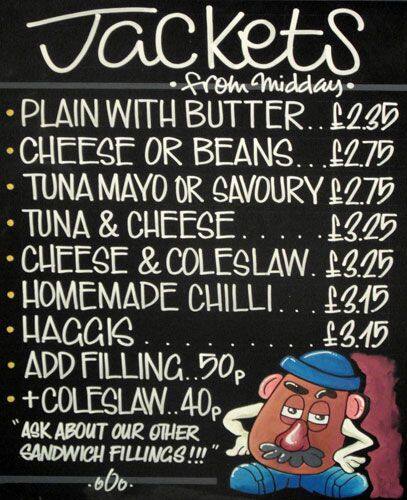 Jackets
• from midday •
• PLAIN WITH BUTTER.. £2.35
• CHEESE OR BEANS... £2.75
• TUNA MAYO OR SAVOURY £2.75
• TUNA & CHEESE..... £3.25
• CHEESE & COLESLAW. £3.25
• HOMEMADE CHILLI... £3.15
• HAGGIS......... £3.15
• ADD FILLING..50p
• +COLESLAW..40p
"ASK ABOUT OUR OTHER
SANDWICH FILLINGS!!!"